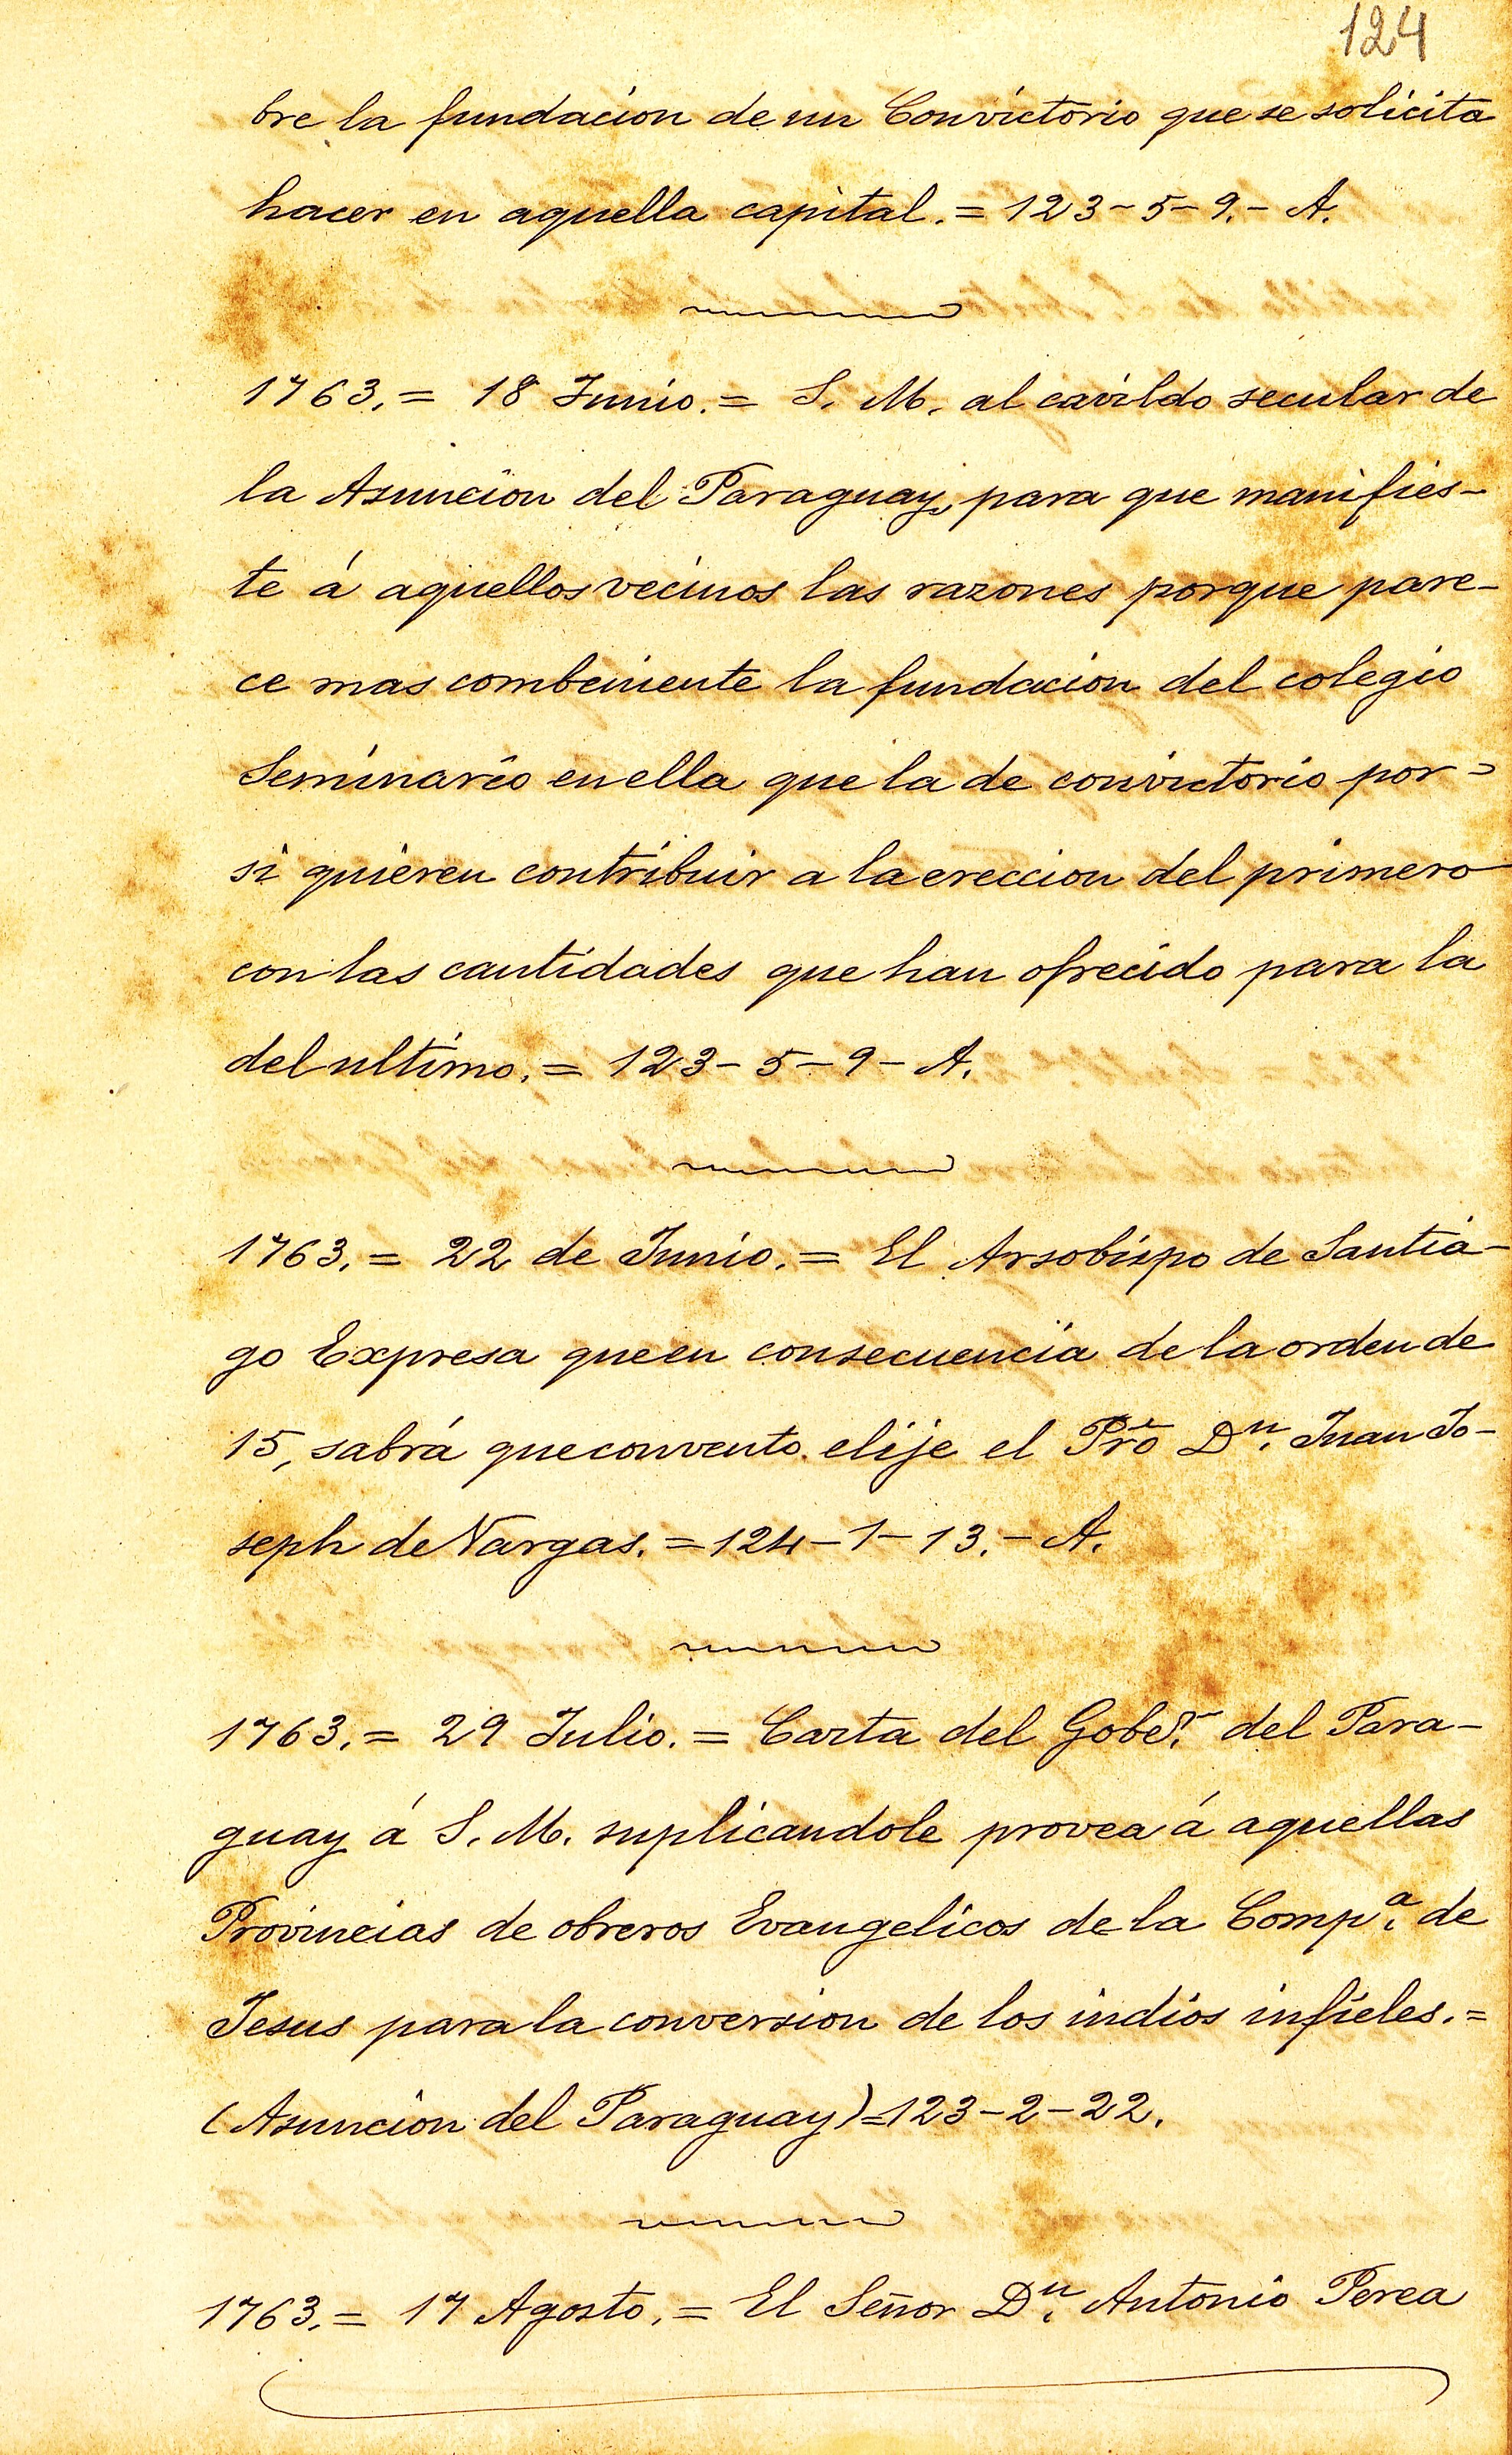 124
bre la fundacion de un Convictorio que se solicita
hacer en aquella capital. = 123-5-9.- A.
1763. = 18 Junio. = S. M. al cavildo secular de
la Asuncion del Paraguay, para que manifies-
te á aquellos vecinos las razones porque pare-
ce mas combeniente la fundacion del colegio
Seminario en ella que la de convictorio por =
si quieren contribuir a la ereccion del primero
con las cantidades que han ofrecido para la
del ultimo. = 123-5-9- A.
1763. = 22 de Junio. = El Arsobispo de Santia-
go Expresa que en consecuencia de la orden de
15, sabrá que convento elije el Pro Dn. Juan Jo-
seph de Vargas. = 124-1-13.- A.
1763. = 29 Julio. = Carta del Gober. del Para-
guay á S. M. suplicandole provea á aquellas
Provincias de obreros Evangelicos de la Compa. de
Jesus para la conversion de los indios infieles. =
(Asuncion del Paraguay) = 123-2-22.
1763. = 17 Agosto. = El Señor Dn. Antonio Perea